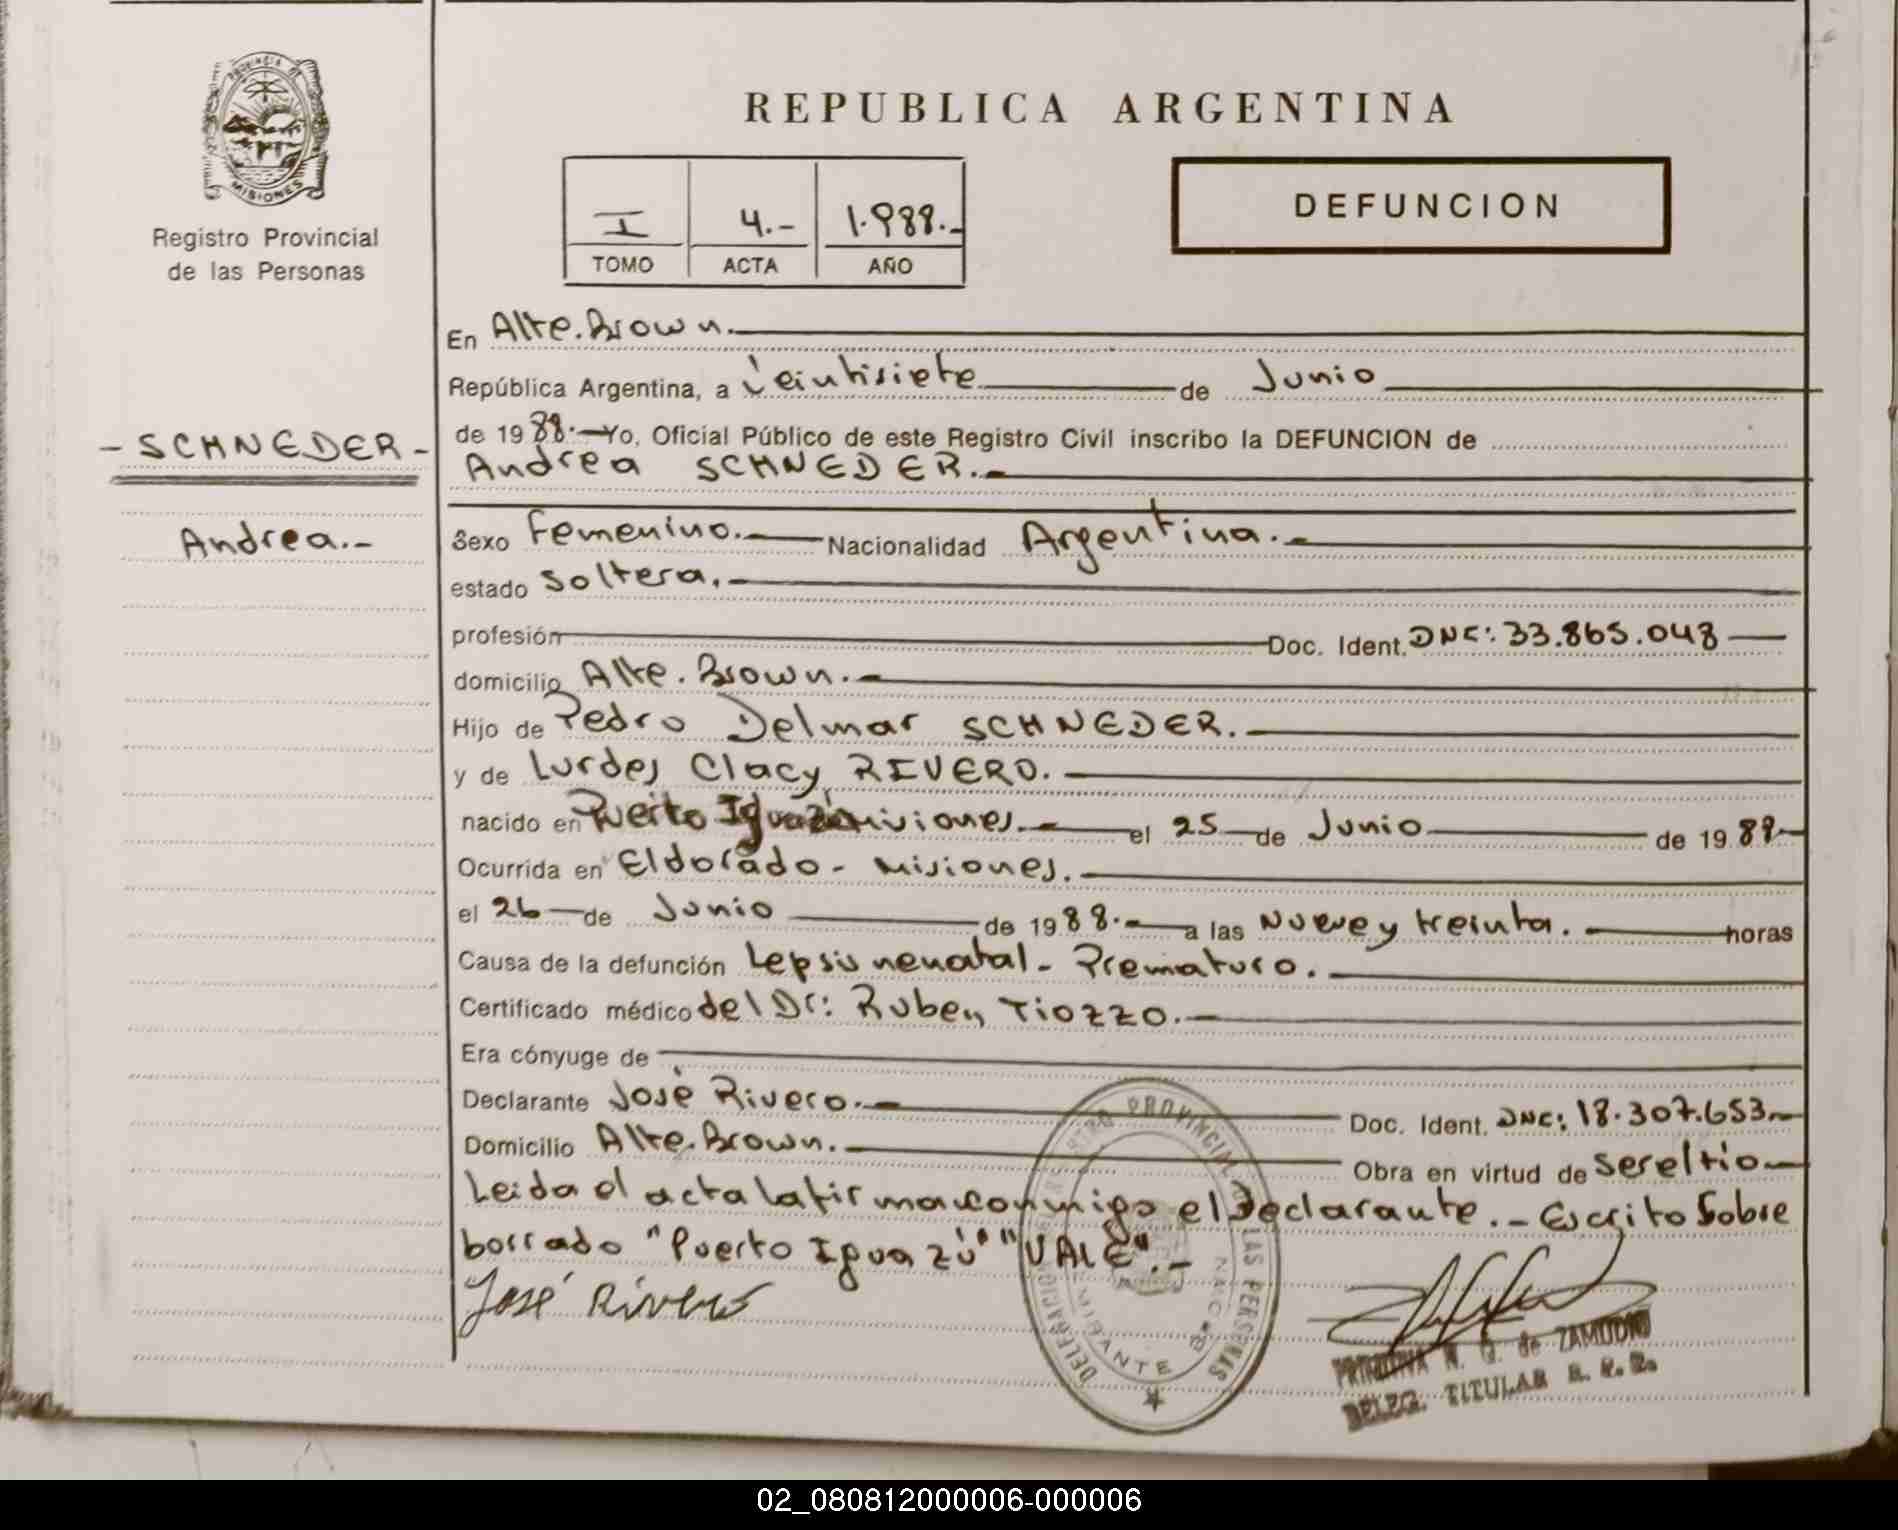 PROVINCIA DE
MISIONES
Registro Provincial
de las Personas
- SCHNEDER -
Andrea.-
REPUBLICA ARGENTINA
I 4.- 1.988.-
TOMO ACTA AÑO
DEFUNCION
En Alte. Brown.
República Argentina, a Veintisiete de Junio
de 1988.- Yo, Oficial Público de este Registro Civil inscribo la DEFUNCION de
Andrea SCHNEDER.-
Sexo Femenino.- Nacionalidad Argentina.-
estado Soltera.-
profesión Doc. Ident. DNC: 33.865.048
domicilio Alte. Brown.-
Hijo de Pedro Delmar SCHNEDER.-
y de Lurdes Clacy RIVERO.-
nacido en Puerto Iguazú Misiones.- el 25 de Junio de 1988-
Ocurrida en Eldorado - Misiones.-
el 26 de Junio de 1988.- a las Nueve y treinta.- horas
Causa de la defunción Lepsis nenatal - Prematuro.-
Certificado médico del Dr: Ruben Tiozzo.-
Era cónyuge de
Declarante José Rivero.- Doc. Ident. DNC: 18.307.653-
Domicilio Alte. Brown.- Obra en virtud de ser el tío-
Leida el acta la firma conmigo el Declarante.- Escrito Sobre
borrado "Puerto Iguazú" "VALE".-
José Rivero
REGISTRO PROVINCIAL DE LAS PERSONAS
DELEGACION
ALMIRANTE BROWN
N. G. de ZAMUDIO
DELEG. TITULAR R. P. P.
02_080812000006-000006